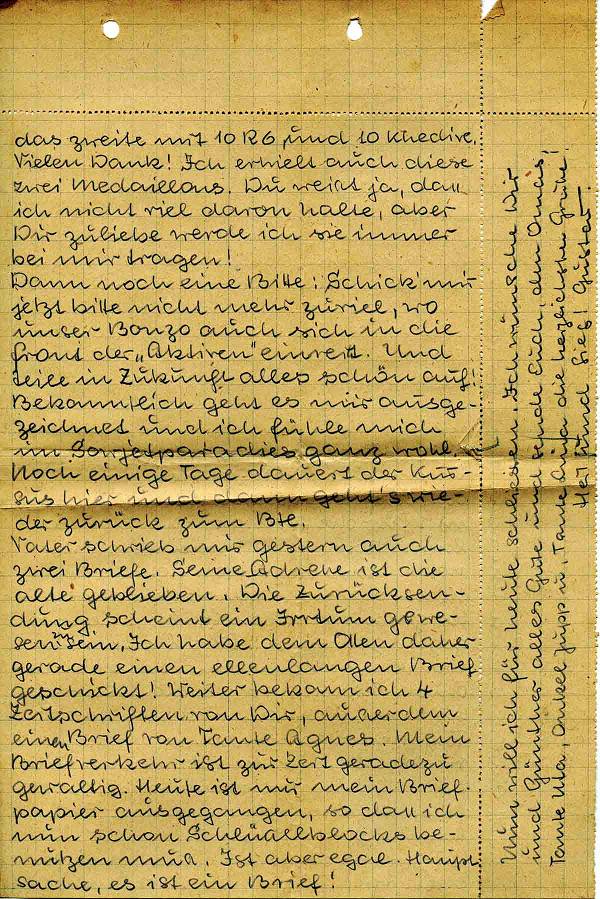 das zweite mit 10 R6 und 10 Khedive.
Vielen Dank! Ich erhielt auch diese
zwei Medaillons. Du weißt ja, daß
ich nicht viel davon halte, aber
Dir zuliebe werde ich sie immer
bei mir tragen!
Dann noch eine Bitte: Schick' mir
jetzt bitte nicht mehr zuviel, wo
unser Bonzo auch sich in die
Front der „Aktiven" einreit. Und
teile in Zukunft alles schön auf!
Bekanntlich geht es mir ausge-
zeichnet und ich fühle mich
im Sowjetparadies ganz wohl.
Noch einige Tage dauert der Kur-
sus hier und dann geht's wie-
der zurück zum Bte.
Vater schrieb mir gestern auch
zwei Briefe. Seine Adreße ist die
alte geblieben. Die Zurücksen-
dung scheint ein Irrtum gewe-
sen zu sein. Ich habe dem Alten daher
gerade einen ellenlangen Brief
geschickt! Weiter bekam ich 4
Zeitschriften von Dir, außerdem
einen Brief von Tante Agnes. Mein
Briefverkehr ist zur Zeit geradezu
gewaltig. Heute ist mir mein Brief-
papier ausgegangen, so daß ich
nun schon
nützen muß. Ist aber egal. Haupt-
sache, es ist ein Brief!
Nun will ich für heute schließen. Ich wünsche Dir
und Günther alles Gute und sende Euch, den Omas,
Tante Ula, Onkel Jupp u. Tante die herzlichsten Grüße!
Heil und Sieg! Gustav.